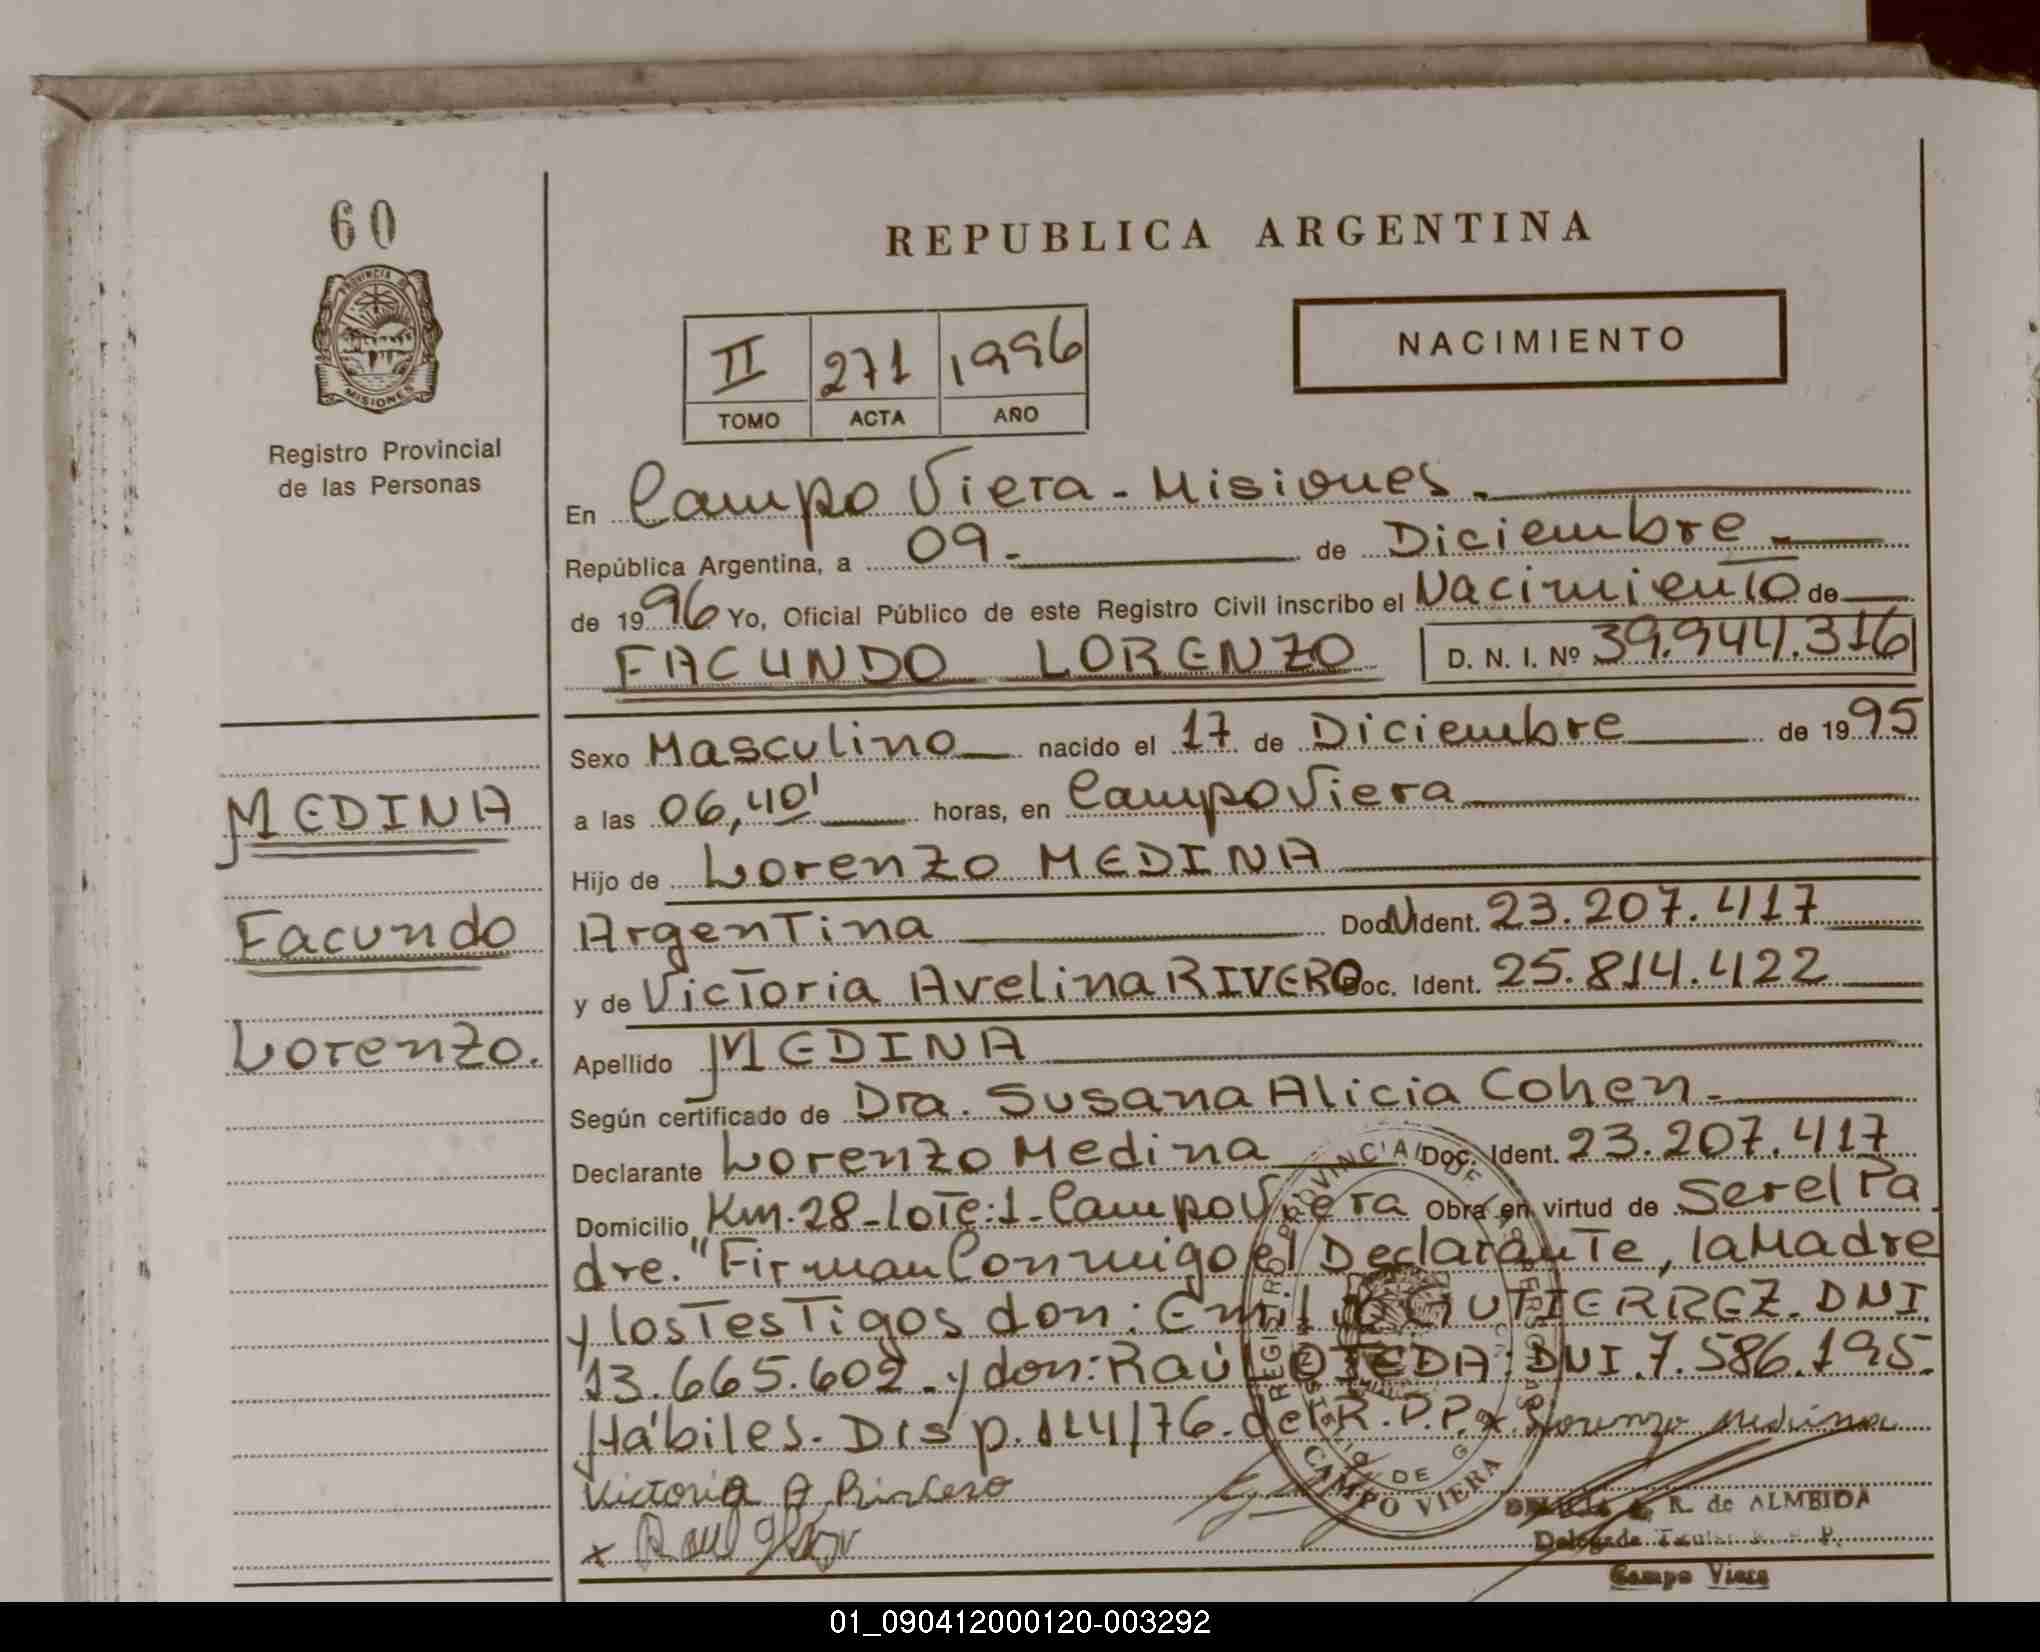 60
PROVINCIA DE
MISIONES
Registro Provincial
de las Personas
MEDINA
Facundo
Lorenzo.
REPUBLICA ARGENTINA
II 271 1996
TOMO ACTA AÑO
NACIMIENTO
En Campo Viera - Misiones.
República Argentina, a 09.- de Diciembre.-
de 1996 Yo, Oficial Público de este Registro Civil inscribo el Nacimiento de
FACUNDO LORENZO D. N. I. Nº 39.944.316
Sexo Masculino nacido el 17 de Diciembre de 1995
a las 06,40' horas, en Campo Viera
Hijo de Lorenzo MEDINA
Argentina Doc. Ident. 23.207.417
y de Victoria Avelina RIVERO Doc. Ident. 25.814.422
Apellido MEDINA
Según certificado de Dra. Susana Alicia Cohen.-
Declarante Lorenzo Medina Doc. Ident. 23.207.417
Domicilio Km.28-lote:1-Campo Viera Obra en virtud de Ser el Pa
dre. "Firman Conmigo el Declarante, la Madre
y los Testigos don: Emilio GUTIERREZ. DNI
13.665.602.- y don: Raúl OJEDA: DNI.7.586.195.
Hábiles. Disp. 144/76. del R.P.P. x Lorenzo Medina
Victoria A
x Raul
REGISTRO PROVINCIAL DE LAS PERSONAS
CAMPO VIERA
R. de ALMEIDA
Delegada Titular R. P. P.
Campo Viera
01_090412000120-003292